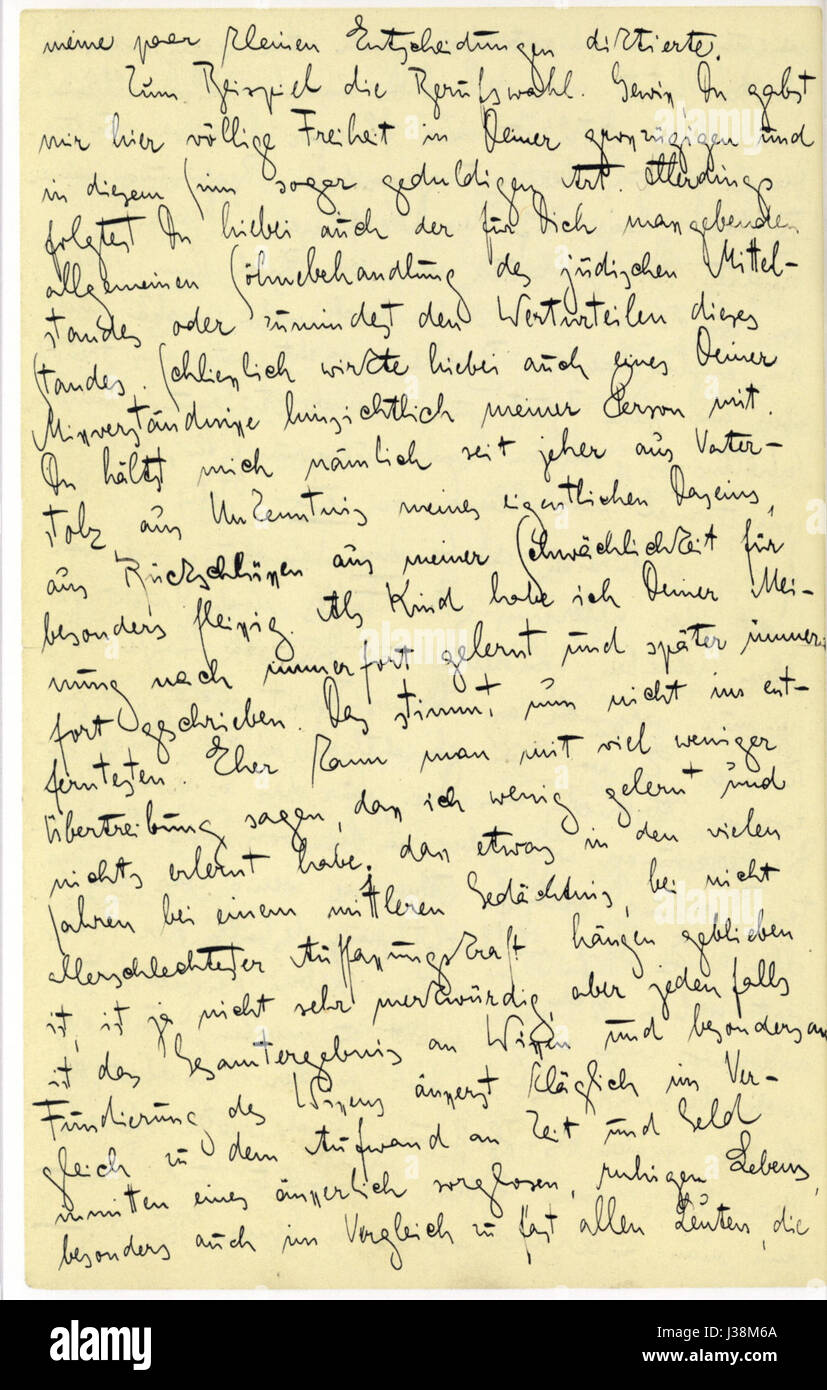 meine paar kleinen Entscheidungen diktierte.
Zum Beispiel die Berufswahl. Gewiss Du gabst
mir hier völlige Freiheit in Deiner grosszügigen und
in diesem Sinn sogar geduldigen Art. Allerdings
folgtest Du hiebei auch der für Dich massgebenden
allgemeinen Söhnebehandlung des jüdischen Mittel-
standes oder zumindest den Werturteilen dieses
Standes. Schliesslich wirkte hiebei auch eines Deiner
Missverständnisse hinsichtlich meiner Person mit.
Du hältst mich nämlich seit jeher aus Vater-
stolz, aus Unkenntnis meines eigentlichen Daseins,
aus Rückschlüssen aus meiner Schwächlichkeit für
besonders fleissig. Als Kind habe ich Deiner Mei-
nung nach immerfort gelernt und später immer-
fort geschrieben. Das stimmt nun nicht im ent-
ferntesten. Eher kann man mit viel weniger
Übertreibung sagen, dass ich wenig gelernt und
nichts erlernt habe; dass etwas in den vielen
Jahren bei einem mittleren Gedächtnis, bei nicht
allerschlechtester Auffassungskraft hängen geblieben
ist, ist ja nicht sehr merkwürdig, aber jedenfalls
ist das Gesamtergebnis an Wissen und besonders an
Fundierung des Wissens äusserst kläglich im Ver-
gleich zu dem Aufwand an Zeit und Geld
inmitten eines äusserlich sorglosen, ruhigen Lebens,
besonders auch im Vergleich zu fast allen Leuten, die
alamy
J38M6A
www.alamy.com